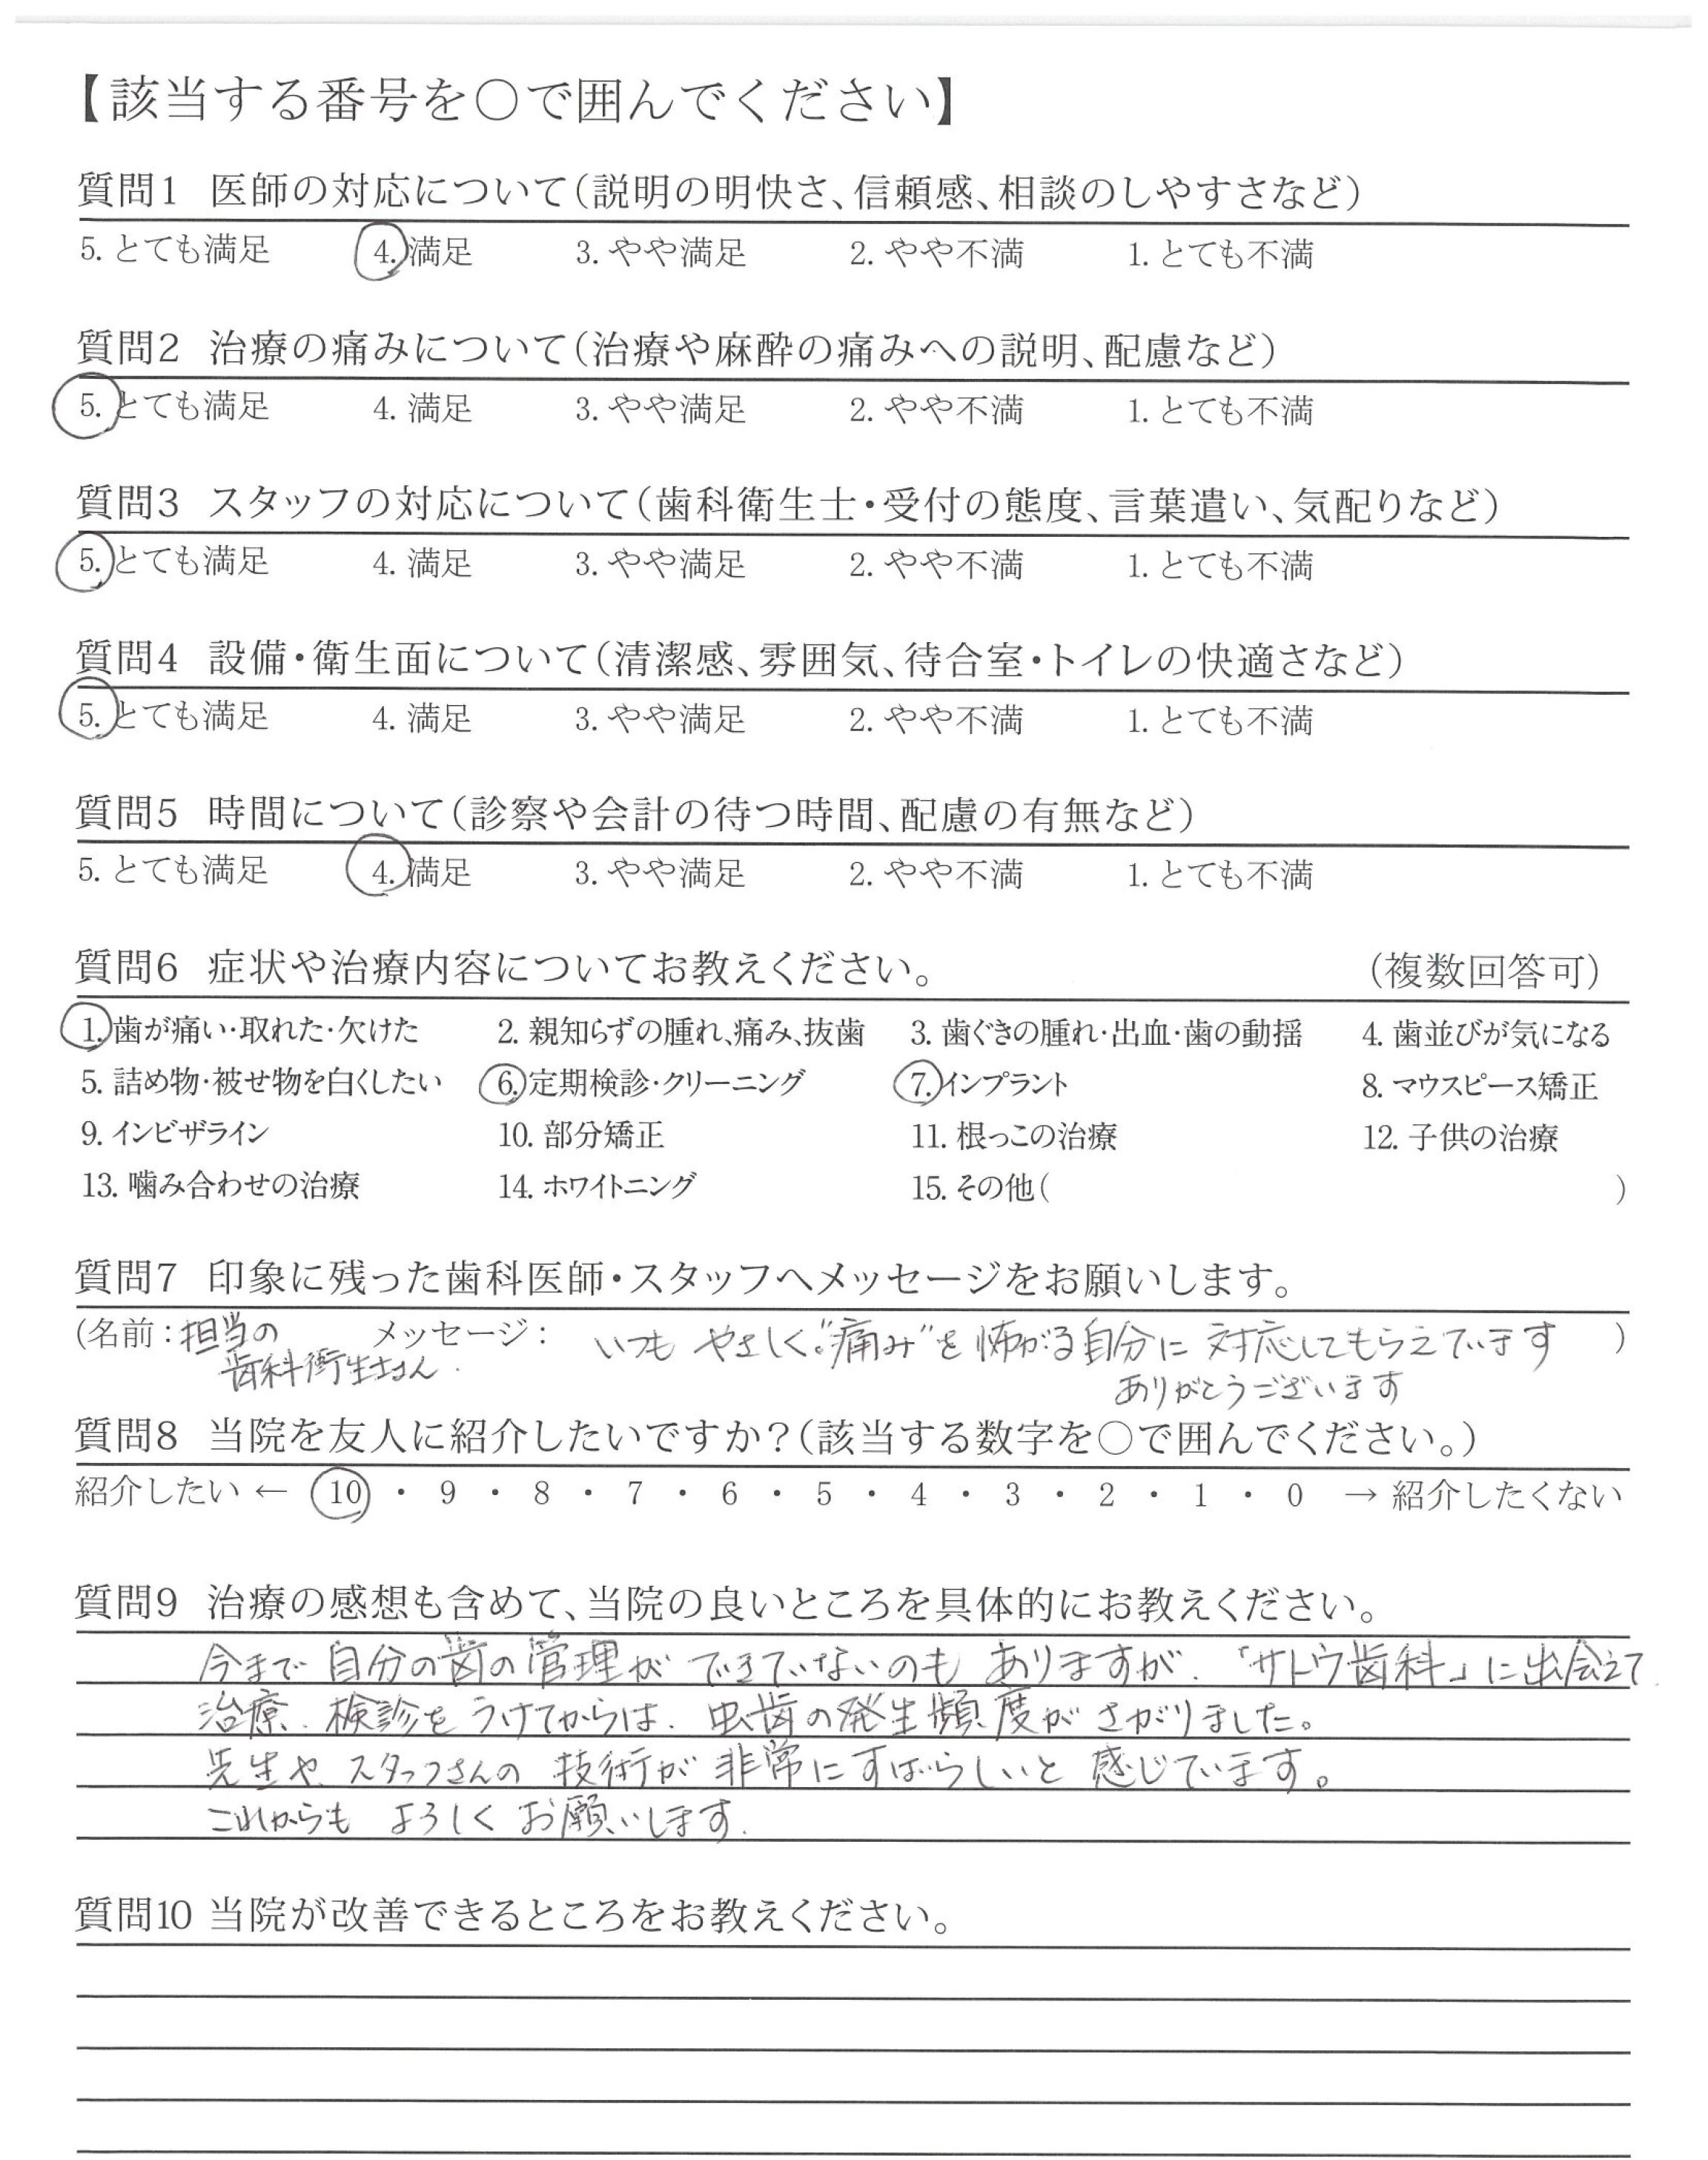 【該当する番号を○で囲んでください】
質問1 医師の対応について(説明の明快さ、信頼感、相談のしやすさなど)
5. とても満足 4. 満足 3. やや満足 2. やや不満 1. とても不満
質問2 治療の痛みについて(治療や麻酔の痛みへの説明、配慮など)
5. とても満足 4. 満足 3. やや満足 2. やや不満 1. とても不満
質問3 スタッフの対応について(歯科衛生士・受付の態度、言葉遣い、気配りなど)
5. とても満足 4. 満足 3. やや満足 2. やや不満 1. とても不満
質問4 設備・衛生面について(清潔感、雰囲気、待合室・トイレの快適さなど)
5. とても満足 4. 満足 3. やや満足 2. やや不満 1. とても不満
質問5 時間について(診察や会計の待つ時間、配慮の有無など)
5. とても満足 4. 満足 3. やや満足 2. やや不満 1. とても不満
質問6 症状や治療内容についてお教えください。 (複数回答可)
1. 歯が痛い・取れた・欠けた 2. 親知らずの腫れ、痛み、抜歯 3. 歯ぐきの腫れ・出血・歯の動揺 4. 歯並びが気になる
5. 詰め物・被せ物を白くしたい 6. 定期検診・クリーニング 7. インプラント 8. マウスピース矯正
9. インビザライン 10. 部分矯正 11. 根っこの治療 12. 子供の治療
13. 噛み合わせの治療 14. ホワイトニング 15. その他( )
質問7 印象に残った歯科医師・スタッフへメッセージをお願いします。
(名前：担当の メッセージ： いつも やさしく。"痛み"を怖がる自分に 対応してもらえています )
歯科衛生士さん. ありがとうございます
質問8 当院を友人に紹介したいですか？(該当する数字を○で囲んでください。)
紹介したい ← 10 ・ 9 ・ 8 ・ 7 ・ 6 ・ 5 ・ 4 ・ 3 ・ 2 ・ 1 ・ 0 → 紹介したくない
質問9 治療の感想も含めて、当院の良いところを具体的にお教えください。
今まで 自分の歯の管理が できていないのも ありますが、「サトウ歯科」に出会えて
治療、検診をうけてからは、虫歯の発生頻度が さがりました。
先生や、スタッフさんの 技術が 非常にすばらしいと 感じています。
これからも よろしく お願いします.
質問10 当院が改善できるところをお教えください。